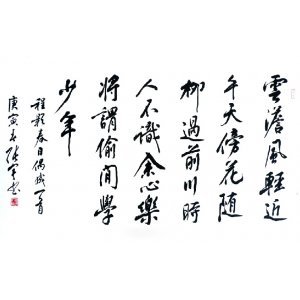 雲澹風輕近
午天傍花隨
柳過前川時
人不識余心樂
將謂偷閒學
少年
程颢春日偶成一首
庚寅春